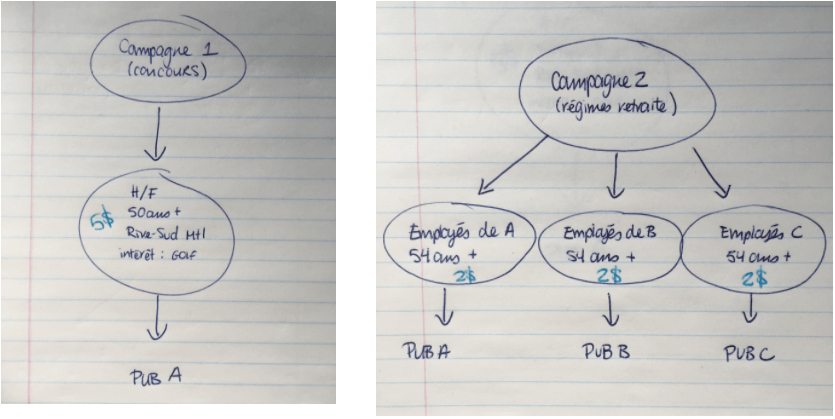 Campagne 1
(concours)
H/F
5$
50 ans +
Rive-Sud Mtl
intérêt : Golf
PUB A
Campagne 2
(régimes retraite)
Employés de A
54 ans +
2$
Employés de B
54 ans +
2$
Employés C
54 ans +
2$
PUB A
PUB B
PUB C